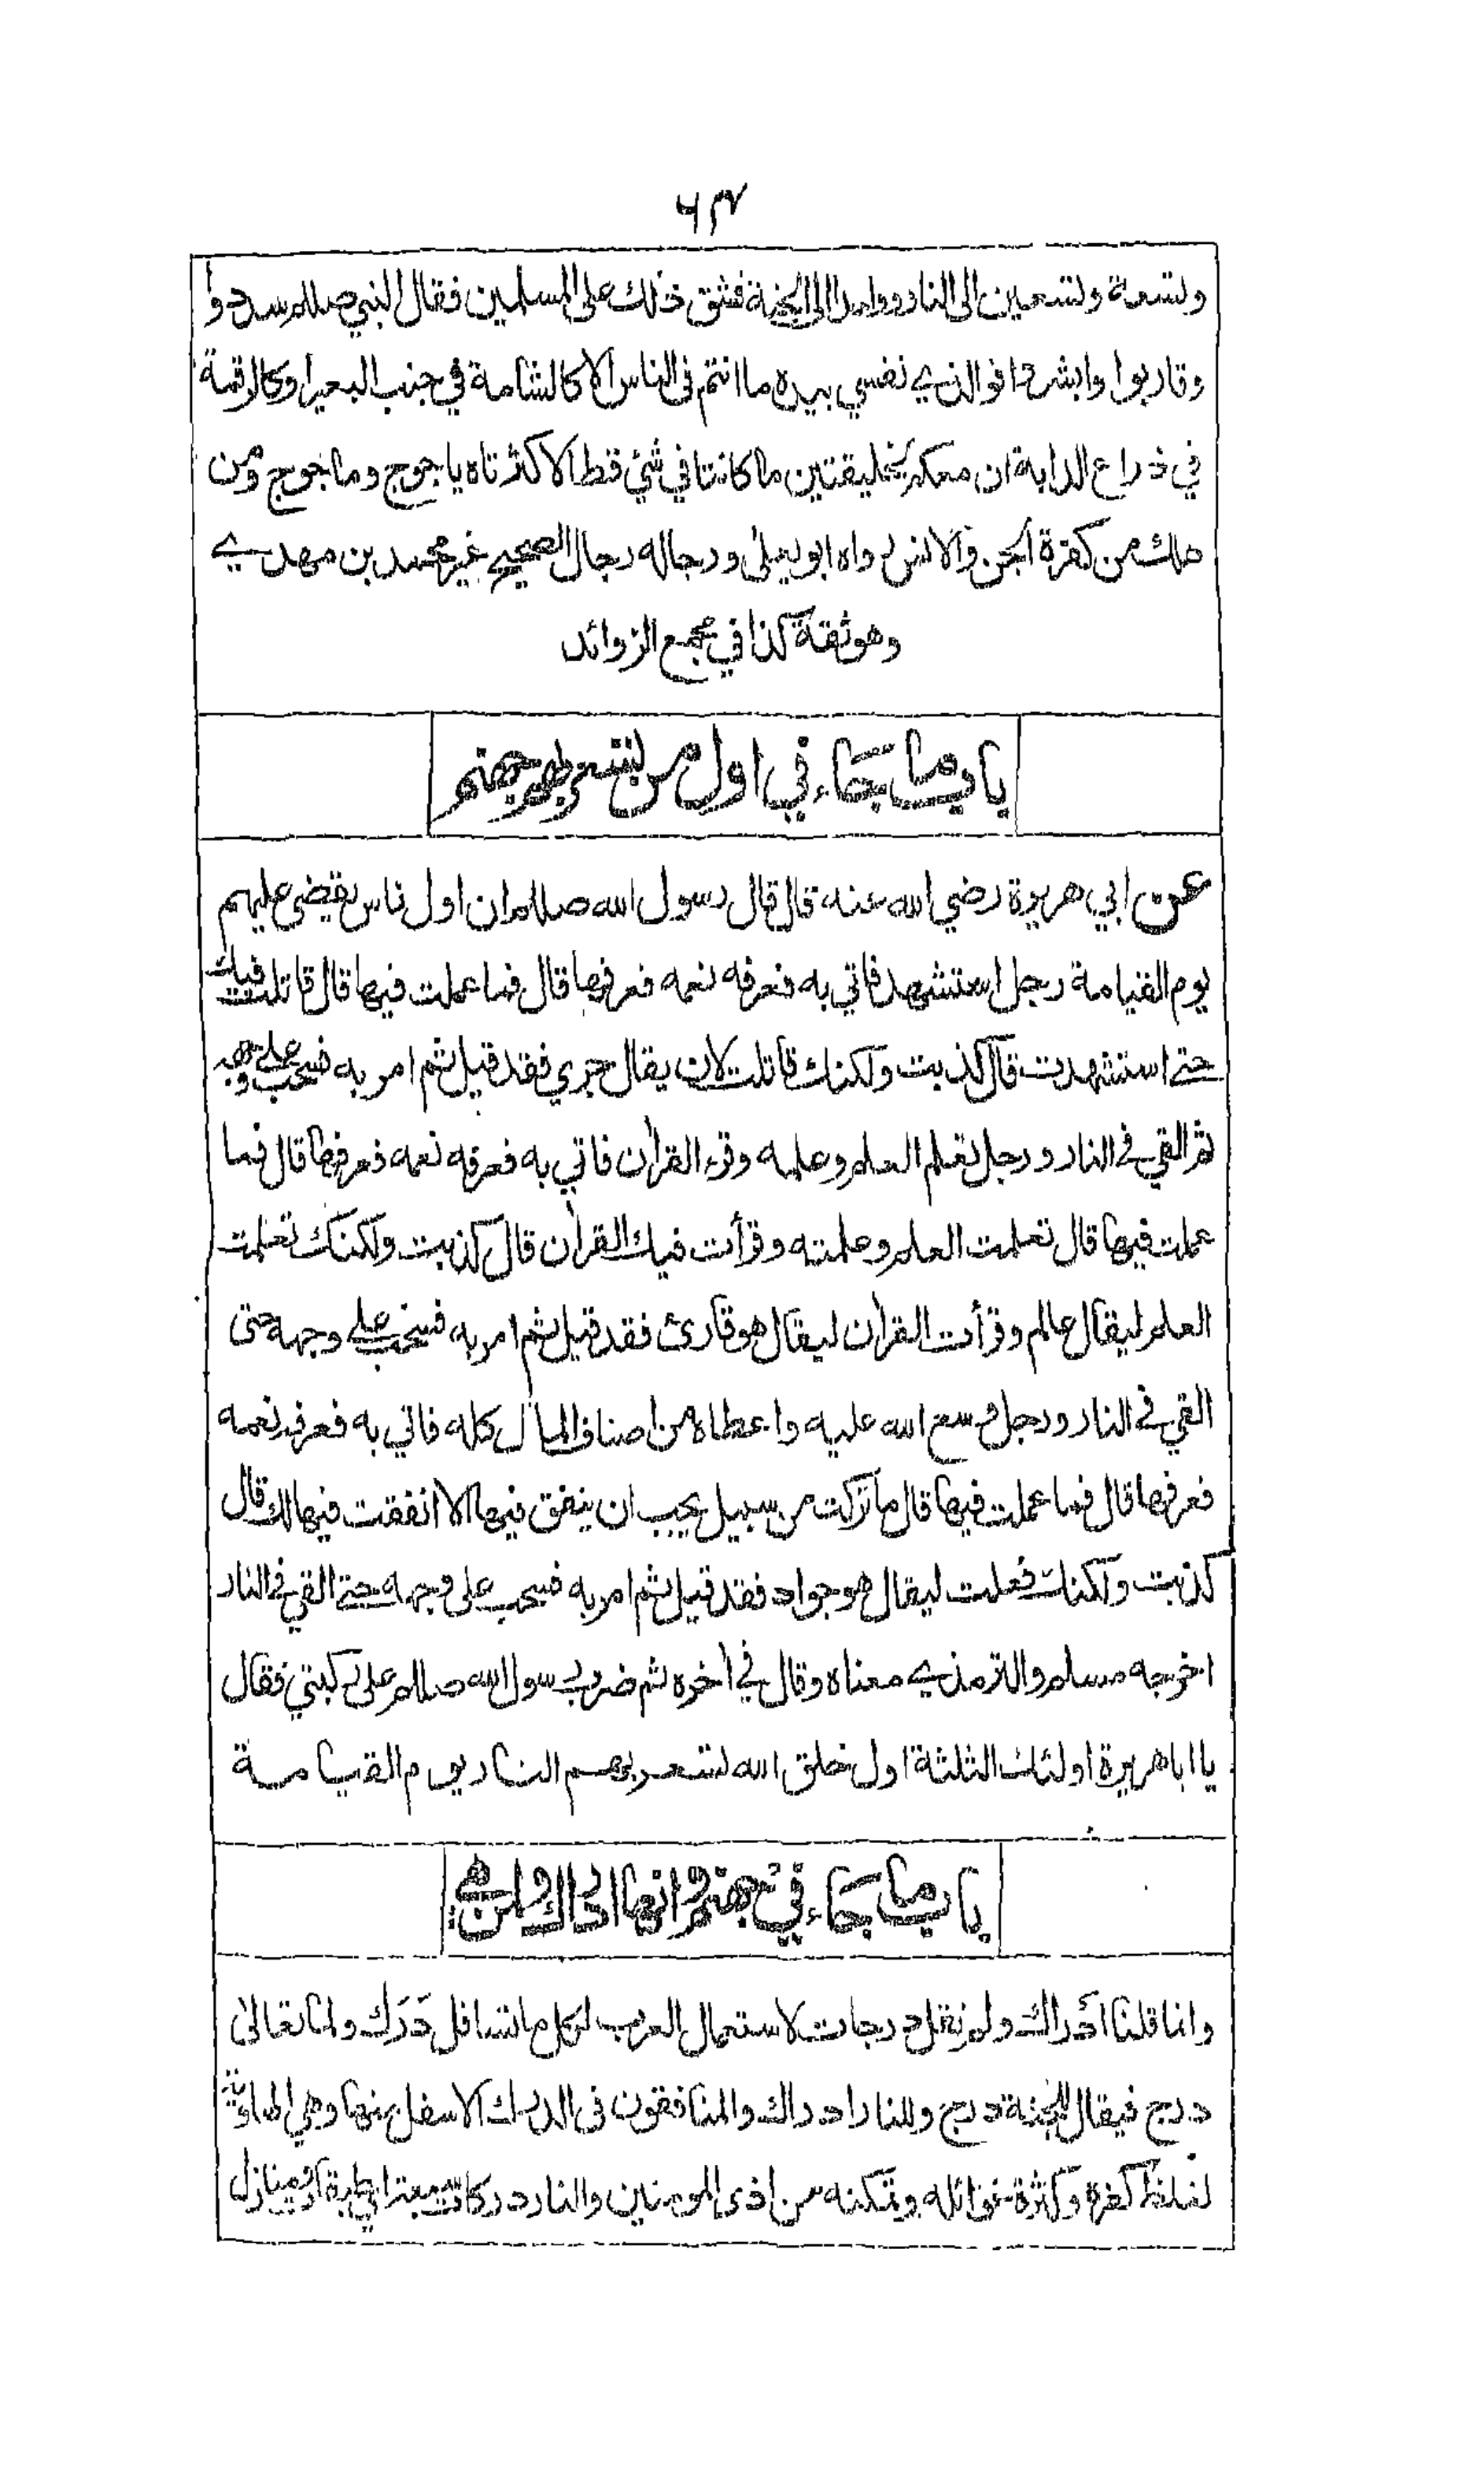 ٦٣
وتسعة وتسعين الى النار وواحدا الى الجنة فشق ذلك على المسلمين فقال النبي صللم سددوا
وقاربوا وابشروا فوالذي نفسي بيده ما انتم فى الناس الا كالشامة في جنب البعير او كالرقمة
في ذراع الدابة ان معكم لخليقتين ما كانتا في شئ قط الا كثرتاه ياجوج وماجوج ومن
هلك من كفرة الجن والانس رواه ابو يعلى ورجاله رجال الصحيح غير محمد بن مهدي
وهو ثقة كذا في مجمع الزوائد
باب ما جاء في اول من تسعر بهم جهنم
عن ابي هريرة رضي الله عنه قال قال رسول الله صللم ان اول ناس يقضى عليهم
يوم القيامة رجل استشهد فاتي به فعرفه نعمه فعرفها قال فما عملت فيها قال قاتلت فيك
حتى استشهدت قال كذبت ولكنك قاتلت لان يقال جري فقد قيل ثم امر به فسحب على وجهه
ثم القي في النار ورجل تعلم العلم وعلمه وقرء القرآن فاتي به فعرفه نعمه فعرفها قال فما
عملت فيها قال تعلمت العلم وعلمته وقرأت فيك القرآن قال كذبت ولكنك تعلمت
العلم ليقال عالم وقرأت القرآن ليقال هو قارئ فقد قيل ثم امر به فسحب على وجهه حتى
القي في النار ورجل وسع الله عليه واعطاه من اصناف المال كله فاتي به فعرفه نعمه
فعرفها قال فما عملت فيها قال ما تركت من سبيل يحب ان ينفق فيها الا انفقت فيها لك قال
كذبت ولكنك فعلت ليقال هو جواد فقد قيل ثم امر به فسحب على وجهه حتى القي في النار
اخرجه مسلم والترمذي معناه وقال في اخره ثم ضرب رسول الله صللم على ركبتي فقال
يا ابا هريرة اولئك الثلثة اول خلق الله تسعر بهم النار يوم القيامة
باب ما جاء في جهنم وانها ادراك ولمن هي
وانما قلنا ادراك ولم نقل درجات لاستعمال العرب لكل ما تسافل دَرَك ولما تعالى
درج فيقال للجنة درج وللنار ادراك والمنافقون في الدرك الاسفل منها وهي الهاوية
لغلظ كفره وكثرة غوائله وتمكنه من اذى المومنين والنار دركات سبعة اي طبقات ومنازل